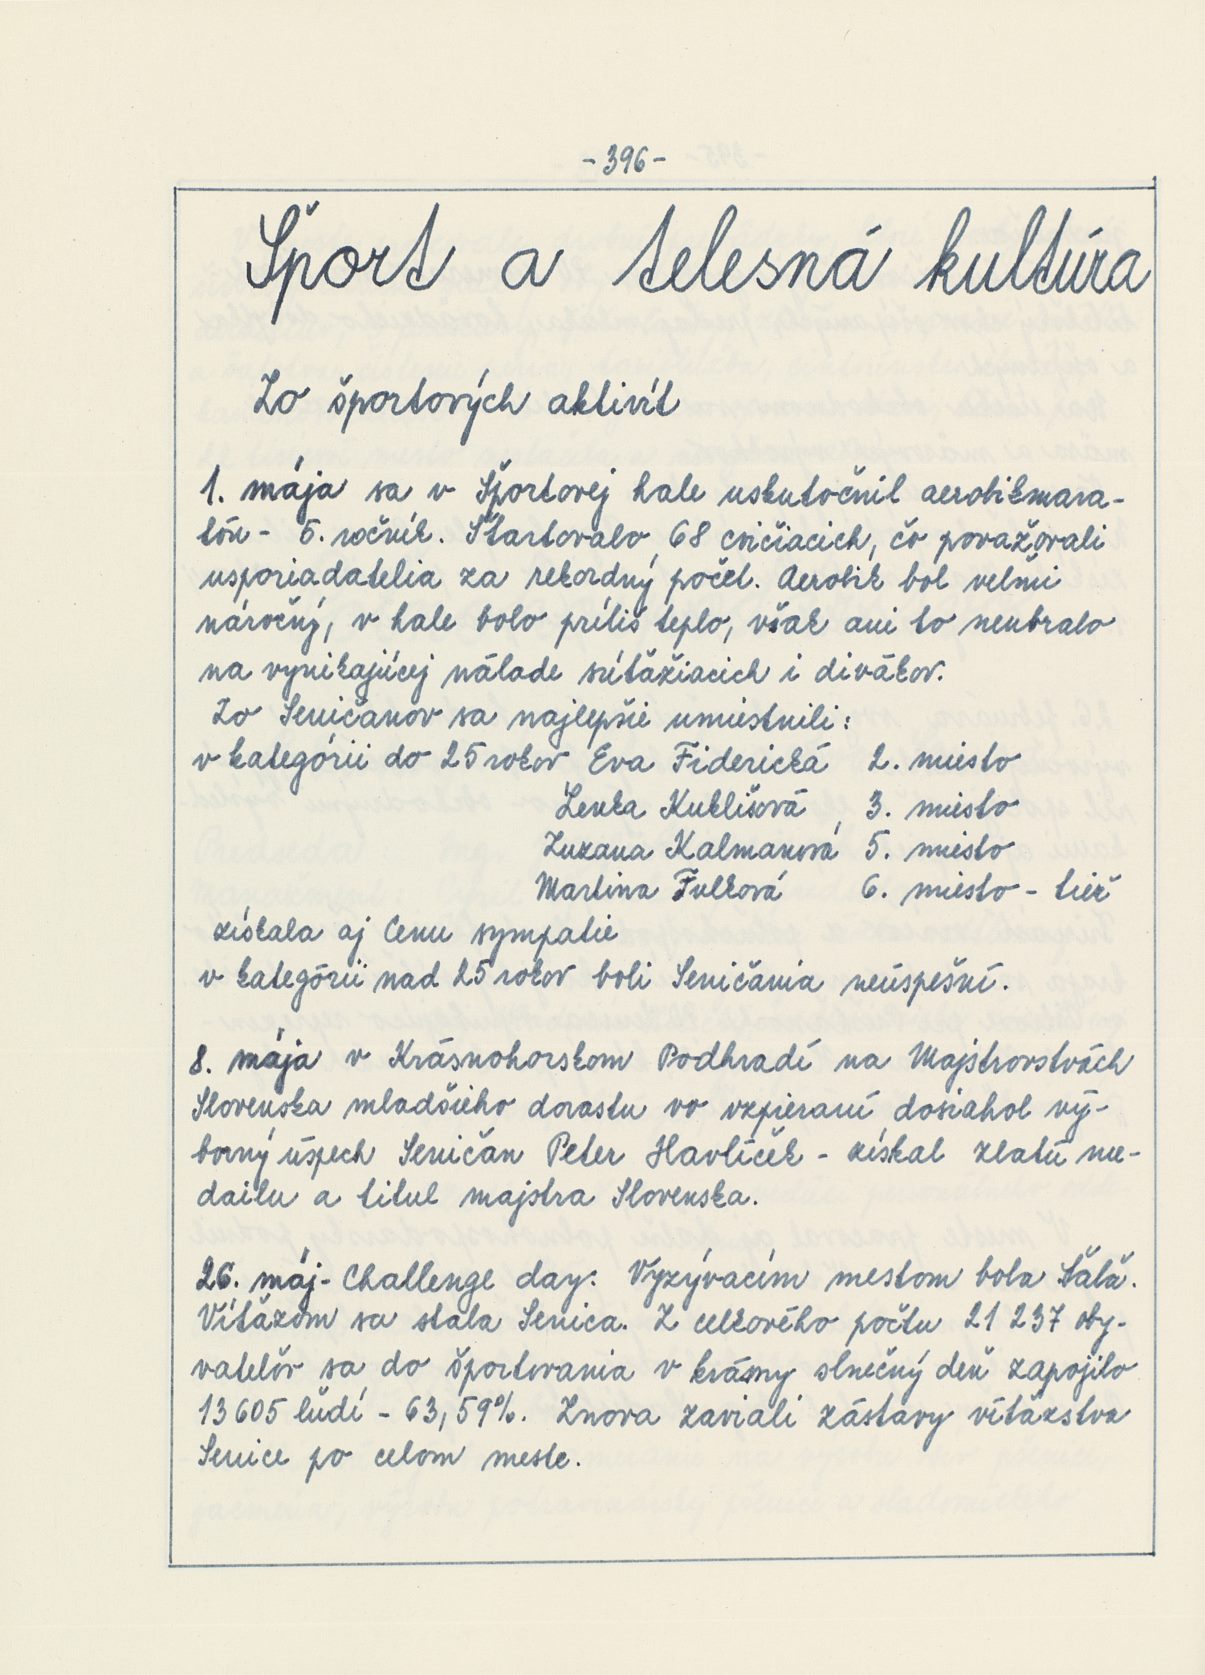 -396-
Šport a telesná kultúra
Zo športových aktivít
1. mája sa v Športovej hale uskutočnil aerobikmara-
tón - 5. ročník. Štartovalo 68 cvičiacich, čo považovali
usporiadatelia za rekordný počet. Aerobik bol veľmi
náročný, v hale bolo príliš teplo, však ani to neubralo
na vynikajúcej nálade súťažiacich i divákov.
Zo Seničanov sa najlepšie umiestnili:
v kategórii do 25 rokov Eva Fiderická 2. miesto
Lenka Kuklišová 3. miesto
Zuzana Kalmanová 5. miesto
Martina Fulková 6. miesto - tiež
získala aj Cenu sympatie
v kategórii nad 25 rokov boli Seničania neúspešní.
8. mája v Krásnohorskom Podhradí na Majstrovstvách
Slovenska mladšieho dorastu vo vzpieraní dosiahol vý-
borný úspech Seničan Peter Havlíček - získal zlatú me-
dailu a titul majstra Slovenska.
26. máj - Challenge day. Vyzývacím mestom bola Šaľa.
Víťazom sa stala Senica. Z celkového počtu 21 237 oby-
vateľov sa do športovania v krásny slnečný deň zapojilo
13 605 ľudí - 63,59%. Znova zaviali zástavy víťazstva
Senice po celom meste.